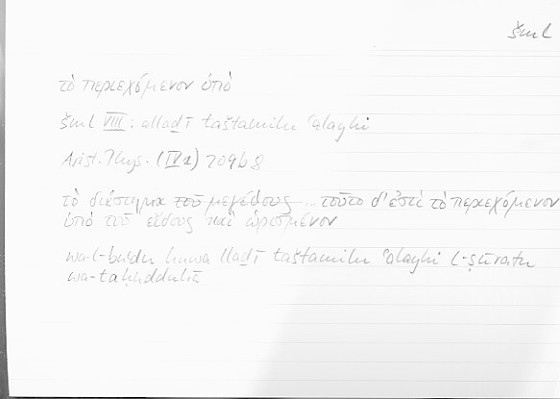 šml
τὸ περιεχόμενον ὑπό
šml VIII: allaḏī taštamilu ʿalayhi
Arist. Phys. (IV 2) 209b8
τὸ διάστημα τοῦ μεγέθους ... τοῦτο δ' ἐστὶ τὸ περιεχόμενον
ὑπὸ τοῦ εἴδους καὶ ὡρισμένον
wa-l-buʿdu huwa llaḏī taštamilu ʿalayhi l-ṣūratu
wa-taḥudduhū